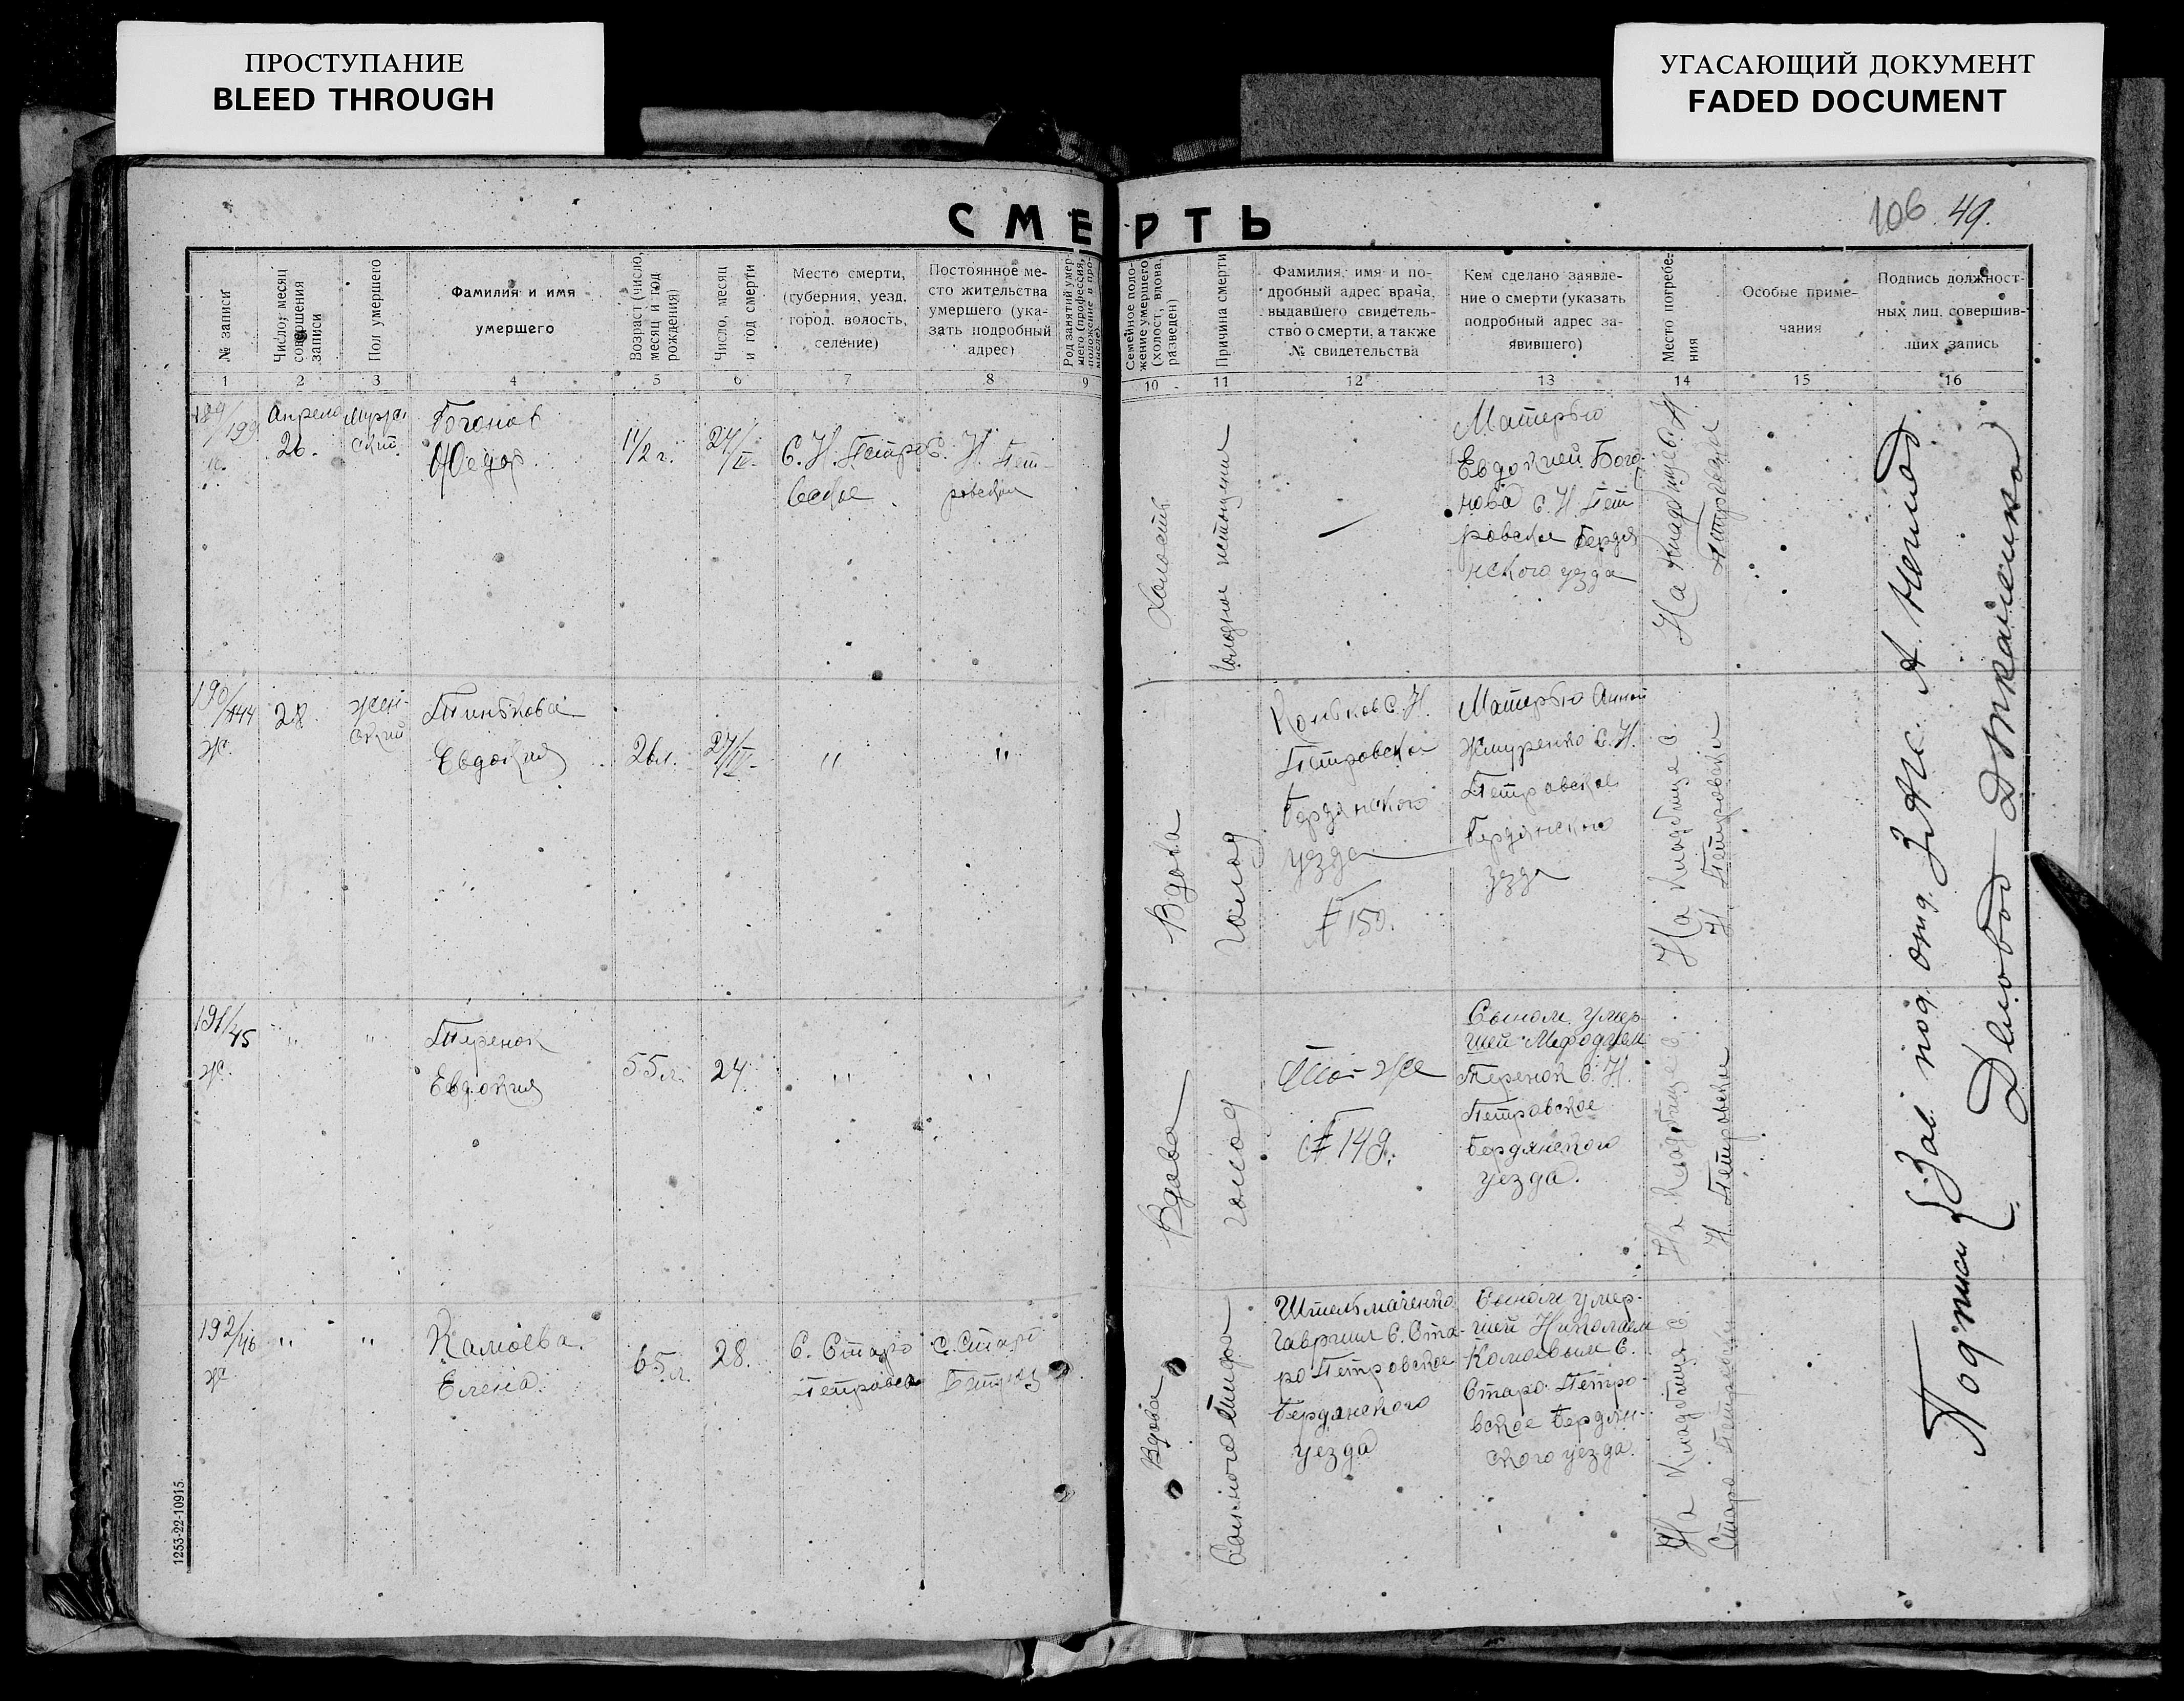 ПРОСТУПАНИЕ
BLEED THROUGH
УГАСАЮЩИЙ ДОКУМЕНТ
FADED DOCUMENT
106 49.
СМЕРТЬ
№ записи
Число, месяц
совершения
записи
Пол умершего
Фамилия и имя
умершего
Возраст (число,
месяц и год
рождения)
Число, месяц
и год смерти
Место смерти,
(губерния, уезд,
город, волость,
селение)
Постоянное ме-
сто жительства
умершего (ука-
зать подробный
адрес)
Род занятий умер-
шего (профессия,
положение в про-
мысле)
Семейное поло-
жение умершего
(холост, вдова,
разведен)
Причина смерти
Фамилия, имя и по-
дробный адрес врача,
выдавшего свидетель-
ство о смерти, а также
№ свидетельства
Кем сделано заявле-
ние о смерти (указать
подробный адрес за-
явившего)
Место погребе-
ния
Особые приме-
чания
Подпись должност-
ных лиц, совершив-
ших запись
1 2 3 4 5 6 7 8 9 10 11 12 13 14 15 16
Апреля
26.
Федор
1 1/2 г.
24/IV.
С. Н. Петров-
ское
Н. Пет-
ровское
Холост
Голодное истощение
—
Матерью
Евдокией Бого-
нова с. Н. Пет-
ровское Бердя
нского уезда
На кладбище с. Н.
Петровски
190/144
ж.
28
жен-
ский
Евдокия
26 л.
27/IV.
"
"
Вдова
Голод
С. Н.
Петровское
Бердянского
уезда
№ 150.
Матерью Анной
С. Н.
Петровское
Бердянского
уезда
На кладбище с.
Н. Петровски
191/45
ж.
"
"
Теренок
Евдокия
55 л.
24
"
"
Вдова
Голод
Той-же
№ 149.
Сыном умер-
шей Мефодием
Теренок С. Н.
Петровское
Бердянского
уезда.
На кладбище с.
Н. Петровски
192/46
ж.
"
"
Камаева.
Елена.
65 л.
28.
С. Старо
Петровск
с. Старо
Вдова
Штельмаченко
Гавриил С. Ста-
ро Петровское
Бердянского
уезда
Сыном умер-
шей Николаем
Камаевым С.
Старо Петро-
вское Бердян-
ского уезда.
На кладбище с.
Старо Петровски
Подписи { Зав. под. отд. ЗАГС. А.
Деловод
1253-22-10915